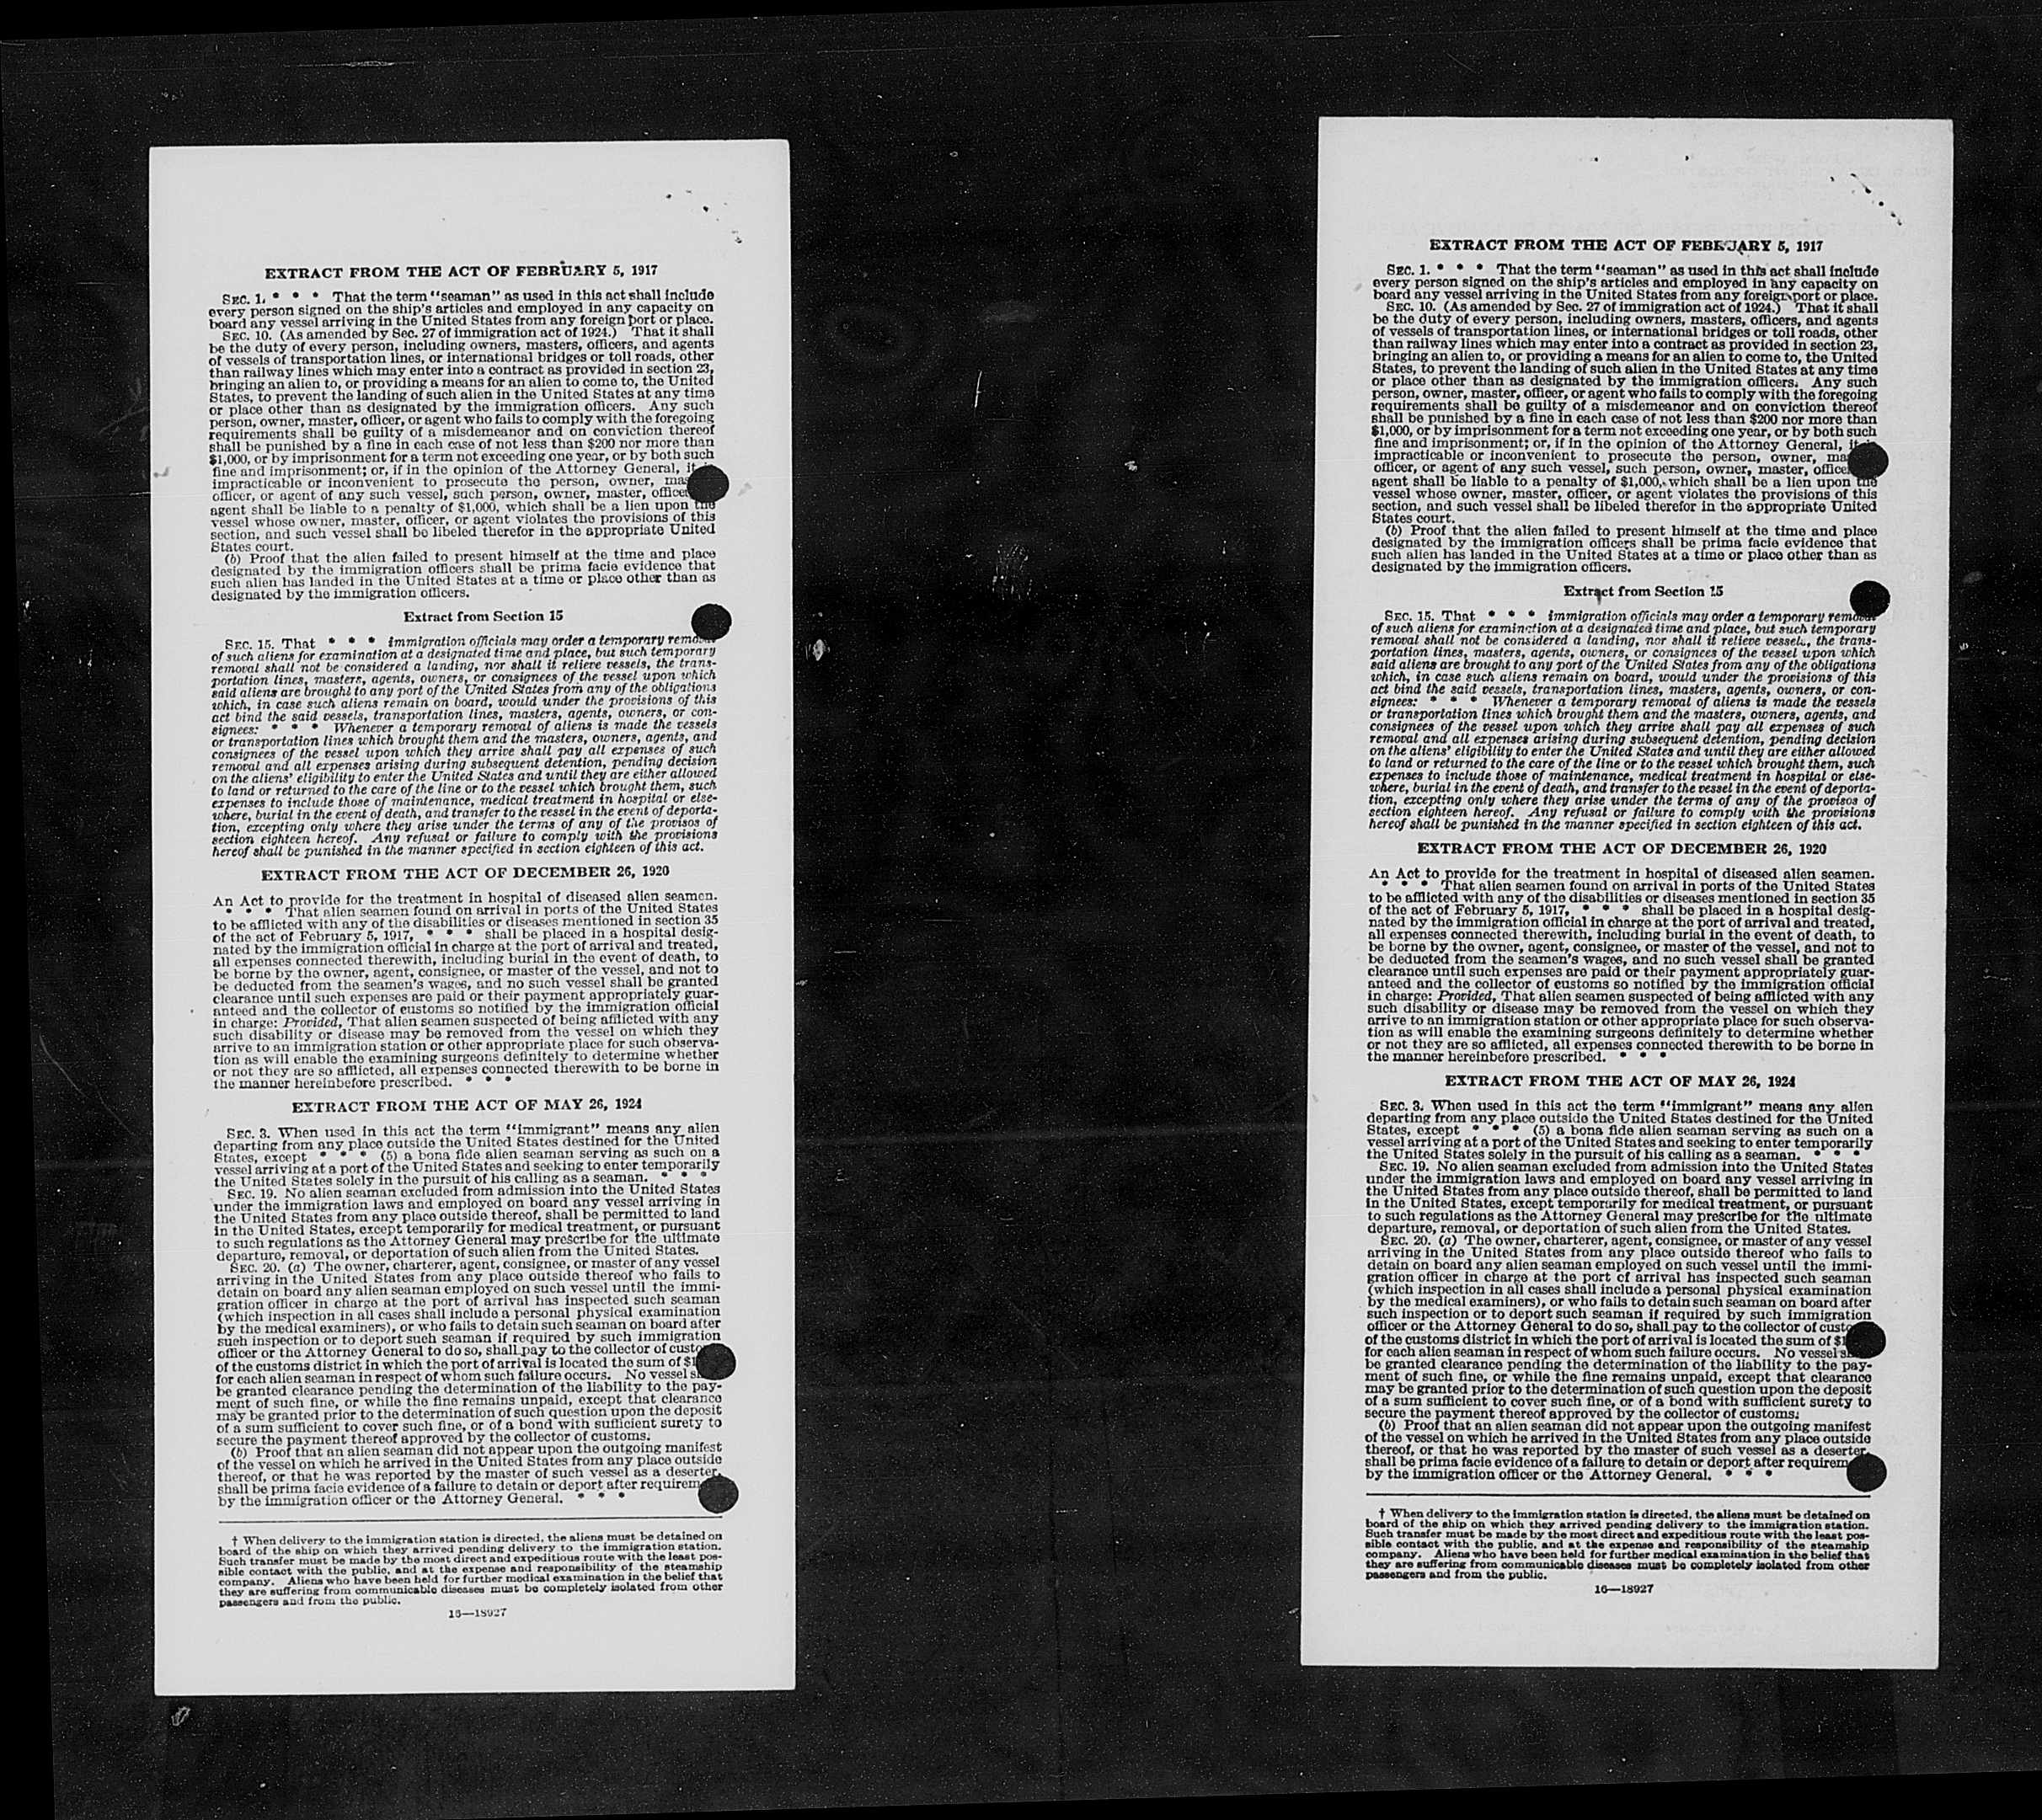 EXTRACT FROM THE ACT OF FEBRUARY 5, 1917
SEC. 1. * * * That the term "seaman" as used in this act shall include
every person signed on the ship's articles and employed in any capacity on
board any vessel arriving in the United States from any foreign port or place.
SEC. 10. (As amended by Sec. 27 of immigration act of 1924.) That it shall
be the duty of every person, including owners, masters, officers, and agents
of vessels of transportation lines, or international bridges or toll roads, other
than railway lines which may enter into a contract as provided in section 23,
bringing an alien to, or providing a means for an alien to come to, the United
States, to prevent the landing of such alien in the United States at any time
or place other than as designated by the immigration officers. Any such
person, owner, master, officer, or agent who fails to comply with the foregoing
requirements shall be guilty of a misdemeanor and on conviction thereof
shall be punished by a fine in each case of not less than $200 nor more than
$1,000, or by imprisonment for a term not exceeding one year, or by both such
fine and imprisonment; or, if in the opinion of the Attorney General, it
impracticable or inconvenient to prosecute the person, owner, mas
officer, or agent of any such vessel, such person, owner, master, officer
agent shall be liable to a penalty of $1,000, which shall be a lien upon the
vessel whose owner, master, officer, or agent violates the provisions of this
section, and such vessel shall be libeled therefor in the appropriate United
States court.
(b) Proof that the alien failed to present himself at the time and place
designated by the immigration officers shall be prima facie evidence that
such alien has landed in the United States at a time or place other than as
designated by the immigration officers.
Extract from Section 15
SEC. 15. That * * * immigration officials may order a temporary removal
of such aliens for examination at a designated time and place, but such temporary
removal shall not be considered a landing, nor shall it relieve vessels, the trans-
portation lines, masters, agents, owners, or consignees of the vessel upon which
said aliens are brought to any port of the United States from any of the obligations
which, in case such aliens remain on board, would under the provisions of this
act bind the said vessels, transportation lines, masters, agents, owners, or con-
signees: * * * Whenever a temporary removal of aliens is made the vessels
or transportation lines which brought them and the masters, owners, agents, and
consignees of the vessel upon which they arrive shall pay all expenses of such
removal and all expenses arising during subsequent detention, pending decision
on the aliens' eligibility to enter the United States and until they are either allowed
to land or returned to the care of the line or to the vessel which brought them, such
expenses to include those of maintenance, medical treatment in hospital or else-
where, burial in the event of death, and transfer to the vessel in the event of deporta-
tion, excepting only where they arise under the terms of any of the provisos of
section eighteen hereof. Any refusal or failure to comply with the provisions
hereof shall be punished in the manner specified in section eighteen of this act.
EXTRACT FROM THE ACT OF DECEMBER 26, 1920
An Act to provide for the treatment in hospital of diseased alien seamen.
* * * That alien seamen found on arrival in ports of the United States
to be afflicted with any of the disabilities or diseases mentioned in section 35
of the act of February 5, 1917, * * * shall be placed in a hospital desig-
nated by the immigration official in charge at the port of arrival and treated,
all expenses connected therewith, including burial in the event of death, to
be borne by the owner, agent, consignee, or master of the vessel, and not to
be deducted from the seamen's wages, and no such vessel shall be granted
clearance until such expenses are paid or their payment appropriately guar-
anteed and the collector of customs so notified by the immigration official
in charge: Provided, That alien seamen suspected of being afflicted with any
such disability or disease may be removed from the vessel on which they
arrive to an immigration station or other appropriate place for such observa-
tion as will enable the examining surgeons definitely to determine whether
or not they are so afflicted, all expenses connected therewith to be borne in
the manner hereinbefore prescribed. * * *
EXTRACT FROM THE ACT OF MAY 26, 1924
SEC. 3. When used in this act the term "immigrant" means any alien
departing from any place outside the United States destined for the United
States, except * * * (5) a bona fide alien seaman serving as such on a
vessel arriving at a port of the United States and seeking to enter temporarily
the United States solely in the pursuit of his calling as a seaman. * * *
SEC. 19. No alien seaman excluded from admission into the United States
under the immigration laws and employed on board any vessel arriving in
the United States from any place outside thereof, shall be permitted to land
in the United States, except temporarily for medical treatment, or pursuant
to such regulations as the Attorney General may prescribe for the ultimate
departure, removal, or deportation of such alien from the United States.
SEC. 20. (a) The owner, charterer, agent, consignee, or master of any vessel
arriving in the United States from any place outside thereof who fails to
detain on board any alien seaman employed on such vessel until the immi-
gration officer in charge at the port of arrival has inspected such seaman
(which inspection in all cases shall include a personal physical examination
by the medical examiners), or who fails to detain such seaman on board after
such inspection or to deport such seaman if required by such immigration
officer or the Attorney General to do so, shall pay to the collector of custo
of the customs district in which the port of arrival is located the sum of $1
for each alien seaman in respect of whom such failure occurs. No vessel s
be granted clearance pending the determination of the liability to the pay-
ment of such fine, or while the fine remains unpaid, except that clearance
may be granted prior to the determination of such question upon the deposit
of a sum sufficient to cover such fine, or of a bond with sufficient surety to
secure the payment thereof approved by the collector of customs.
(b) Proof that an alien seaman did not appear upon the outgoing manifest
of the vessel on which he arrived in the United States from any place outside
thereof, or that he was reported by the master of such vessel as a deserter,
shall be prima facie evidence of a failure to detain or deport after requirem
by the immigration officer or the Attorney General. * * *
† When delivery to the immigration station is directed, the aliens must be detained on
board of the ship on which they arrived pending delivery to the immigration station.
Such transfer must be made by the most direct and expeditious route with the least pos-
sible contact with the public, and at the expense and responsibility of the steamship
company. Aliens who have been held for further medical examination in the belief that
they are suffering from communicable diseases must be completely isolated from other
passengers and from the public.
16—18927
EXTRACT FROM THE ACT OF FEBRUARY 5, 1917
SEC. 1. * * * That the term "seaman" as used in this act shall include
every person signed on the ship's articles and employed in any capacity on
board any vessel arriving in the United States from any foreign port or place.
SEC. 10. (As amended by Sec. 27 of immigration act of 1924.) That it shall
be the duty of every person, including owners, masters, officers, and agents
of vessels of transportation lines, or international bridges or toll roads, other
than railway lines which may enter into a contract as provided in section 23,
bringing an alien to, or providing a means for an alien to come to, the United
States, to prevent the landing of such alien in the United States at any time
or place other than as designated by the immigration officers. Any such
person, owner, master, officer, or agent who fails to comply with the foregoing
requirements shall be guilty of a misdemeanor and on conviction thereof
shall be punished by a fine in each case of not less than $200 nor more than
$1,000, or by imprisonment for a term not exceeding one year, or by both such
fine and imprisonment; or, if in the opinion of the Attorney General, it is
impracticable or inconvenient to prosecute the person, owner, ma
officer, or agent of any such vessel, such person, owner, master, office
agent shall be liable to a penalty of $1,000, which shall be a lien upon the
vessel whose owner, master, officer, or agent violates the provisions of this
section, and such vessel shall be libeled therefor in the appropriate United
States court.
(b) Proof that the alien failed to present himself at the time and place
designated by the immigration officers shall be prima facie evidence that
such alien has landed in the United States at a time or place other than as
designated by the immigration officers.
Extract from Section 15
SEC. 15. That * * * immigration officials may order a temporary removal
of such aliens for examination at a designated time and place, but such temporary
removal shall not be considered a landing, nor shall it relieve vessels, the trans-
portation lines, masters, agents, owners, or consignees of the vessel upon which
said aliens are brought to any port of the United States from any of the obligations
which, in case such aliens remain on board, would under the provisions of this
act bind the said vessels, transportation lines, masters, agents, owners, or con-
signees: * * * Whenever a temporary removal of aliens is made the vessels
or transportation lines which brought them and the masters, owners, agents, and
consignees of the vessel upon which they arrive shall pay all expenses of such
removal and all expenses arising during subsequent detention, pending decision
on the aliens' eligibility to enter the United States and until they are either allowed
to land or returned to the care of the line or to the vessel which brought them, such
expenses to include those of maintenance, medical treatment in hospital or else-
where, burial in the event of death, and transfer to the vessel in the event of deporta-
tion, excepting only where they arise under the terms of any of the provisos of
section eighteen hereof. Any refusal or failure to comply with the provisions
hereof shall be punished in the manner specified in section eighteen of this act.
EXTRACT FROM THE ACT OF DECEMBER 26, 1920
An Act to provide for the treatment in hospital of diseased alien seamen.
* * * That alien seamen found on arrival in ports of the United States
to be afflicted with any of the disabilities or diseases mentioned in section 35
of the act of February 5, 1917, * * * shall be placed in a hospital desig-
nated by the immigration official in charge at the port of arrival and treated,
all expenses connected therewith, including burial in the event of death, to
be borne by the owner, agent, consignee, or master of the vessel, and not to
be deducted from the seamen's wages, and no such vessel shall be granted
clearance until such expenses are paid or their payment appropriately guar-
anteed and the collector of customs so notified by the immigration official
in charge: Provided, That alien seamen suspected of being afflicted with any
such disability or disease may be removed from the vessel on which they
arrive to an immigration station or other appropriate place for such observa-
tion as will enable the examining surgeons definitely to determine whether
or not they are so afflicted, all expenses connected therewith to be borne in
the manner hereinbefore prescribed. * * *
EXTRACT FROM THE ACT OF MAY 26, 1924
SEC. 3. When used in this act the term "immigrant" means any alien
departing from any place outside the United States destined for the United
States, except * * * (5) a bona fide alien seaman serving as such on a
vessel arriving at a port of the United States and seeking to enter temporarily
the United States solely in the pursuit of his calling as a seaman. * * *
SEC. 19. No alien seaman excluded from admission into the United States
under the immigration laws and employed on board any vessel arriving in
the United States from any place outside thereof, shall be permitted to land
in the United States, except temporarily for medical treatment, or pursuant
to such regulations as the Attorney General may prescribe for the ultimate
departure, removal, or deportation of such alien from the United States.
SEC. 20. (a) The owner, charterer, agent, consignee, or master of any vessel
arriving in the United States from any place outside thereof who fails to
detain on board any alien seaman employed on such vessel until the immi-
gration officer in charge at the port of arrival has inspected such seaman
(which inspection in all cases shall include a personal physical examination
by the medical examiners), or who fails to detain such seaman on board after
such inspection or to deport such seaman if required by such immigration
officer or the Attorney General to do so, shall pay to the collector of custo
of the customs district in which the port of arrival is located the sum of $1
for each alien seaman in respect of whom such failure occurs. No vessel s
be granted clearance pending the determination of the liability to the pay-
ment of such fine, or while the fine remains unpaid, except that clearance
may be granted prior to the determination of such question upon the deposit
of a sum sufficient to cover such fine, or of a bond with sufficient surety to
secure the payment thereof approved by the collector of customs.
(b) Proof that an alien seaman did not appear upon the outgoing manifest
of the vessel on which he arrived in the United States from any place outside
thereof, or that he was reported by the master of such vessel as a deserter,
shall be prima facie evidence of a failure to detain or deport after requirem
by the immigration officer or the Attorney General. * * *
† When delivery to the immigration station is directed, the aliens must be detained on
board of the ship on which they arrived pending delivery to the immigration station.
Such transfer must be made by the most direct and expeditious route with the least pos-
sible contact with the public, and at the expense and responsibility of the steamship
company. Aliens who have been held for further medical examination in the belief that
they are suffering from communicable diseases must be completely isolated from other
passengers and from the public.
16—18927